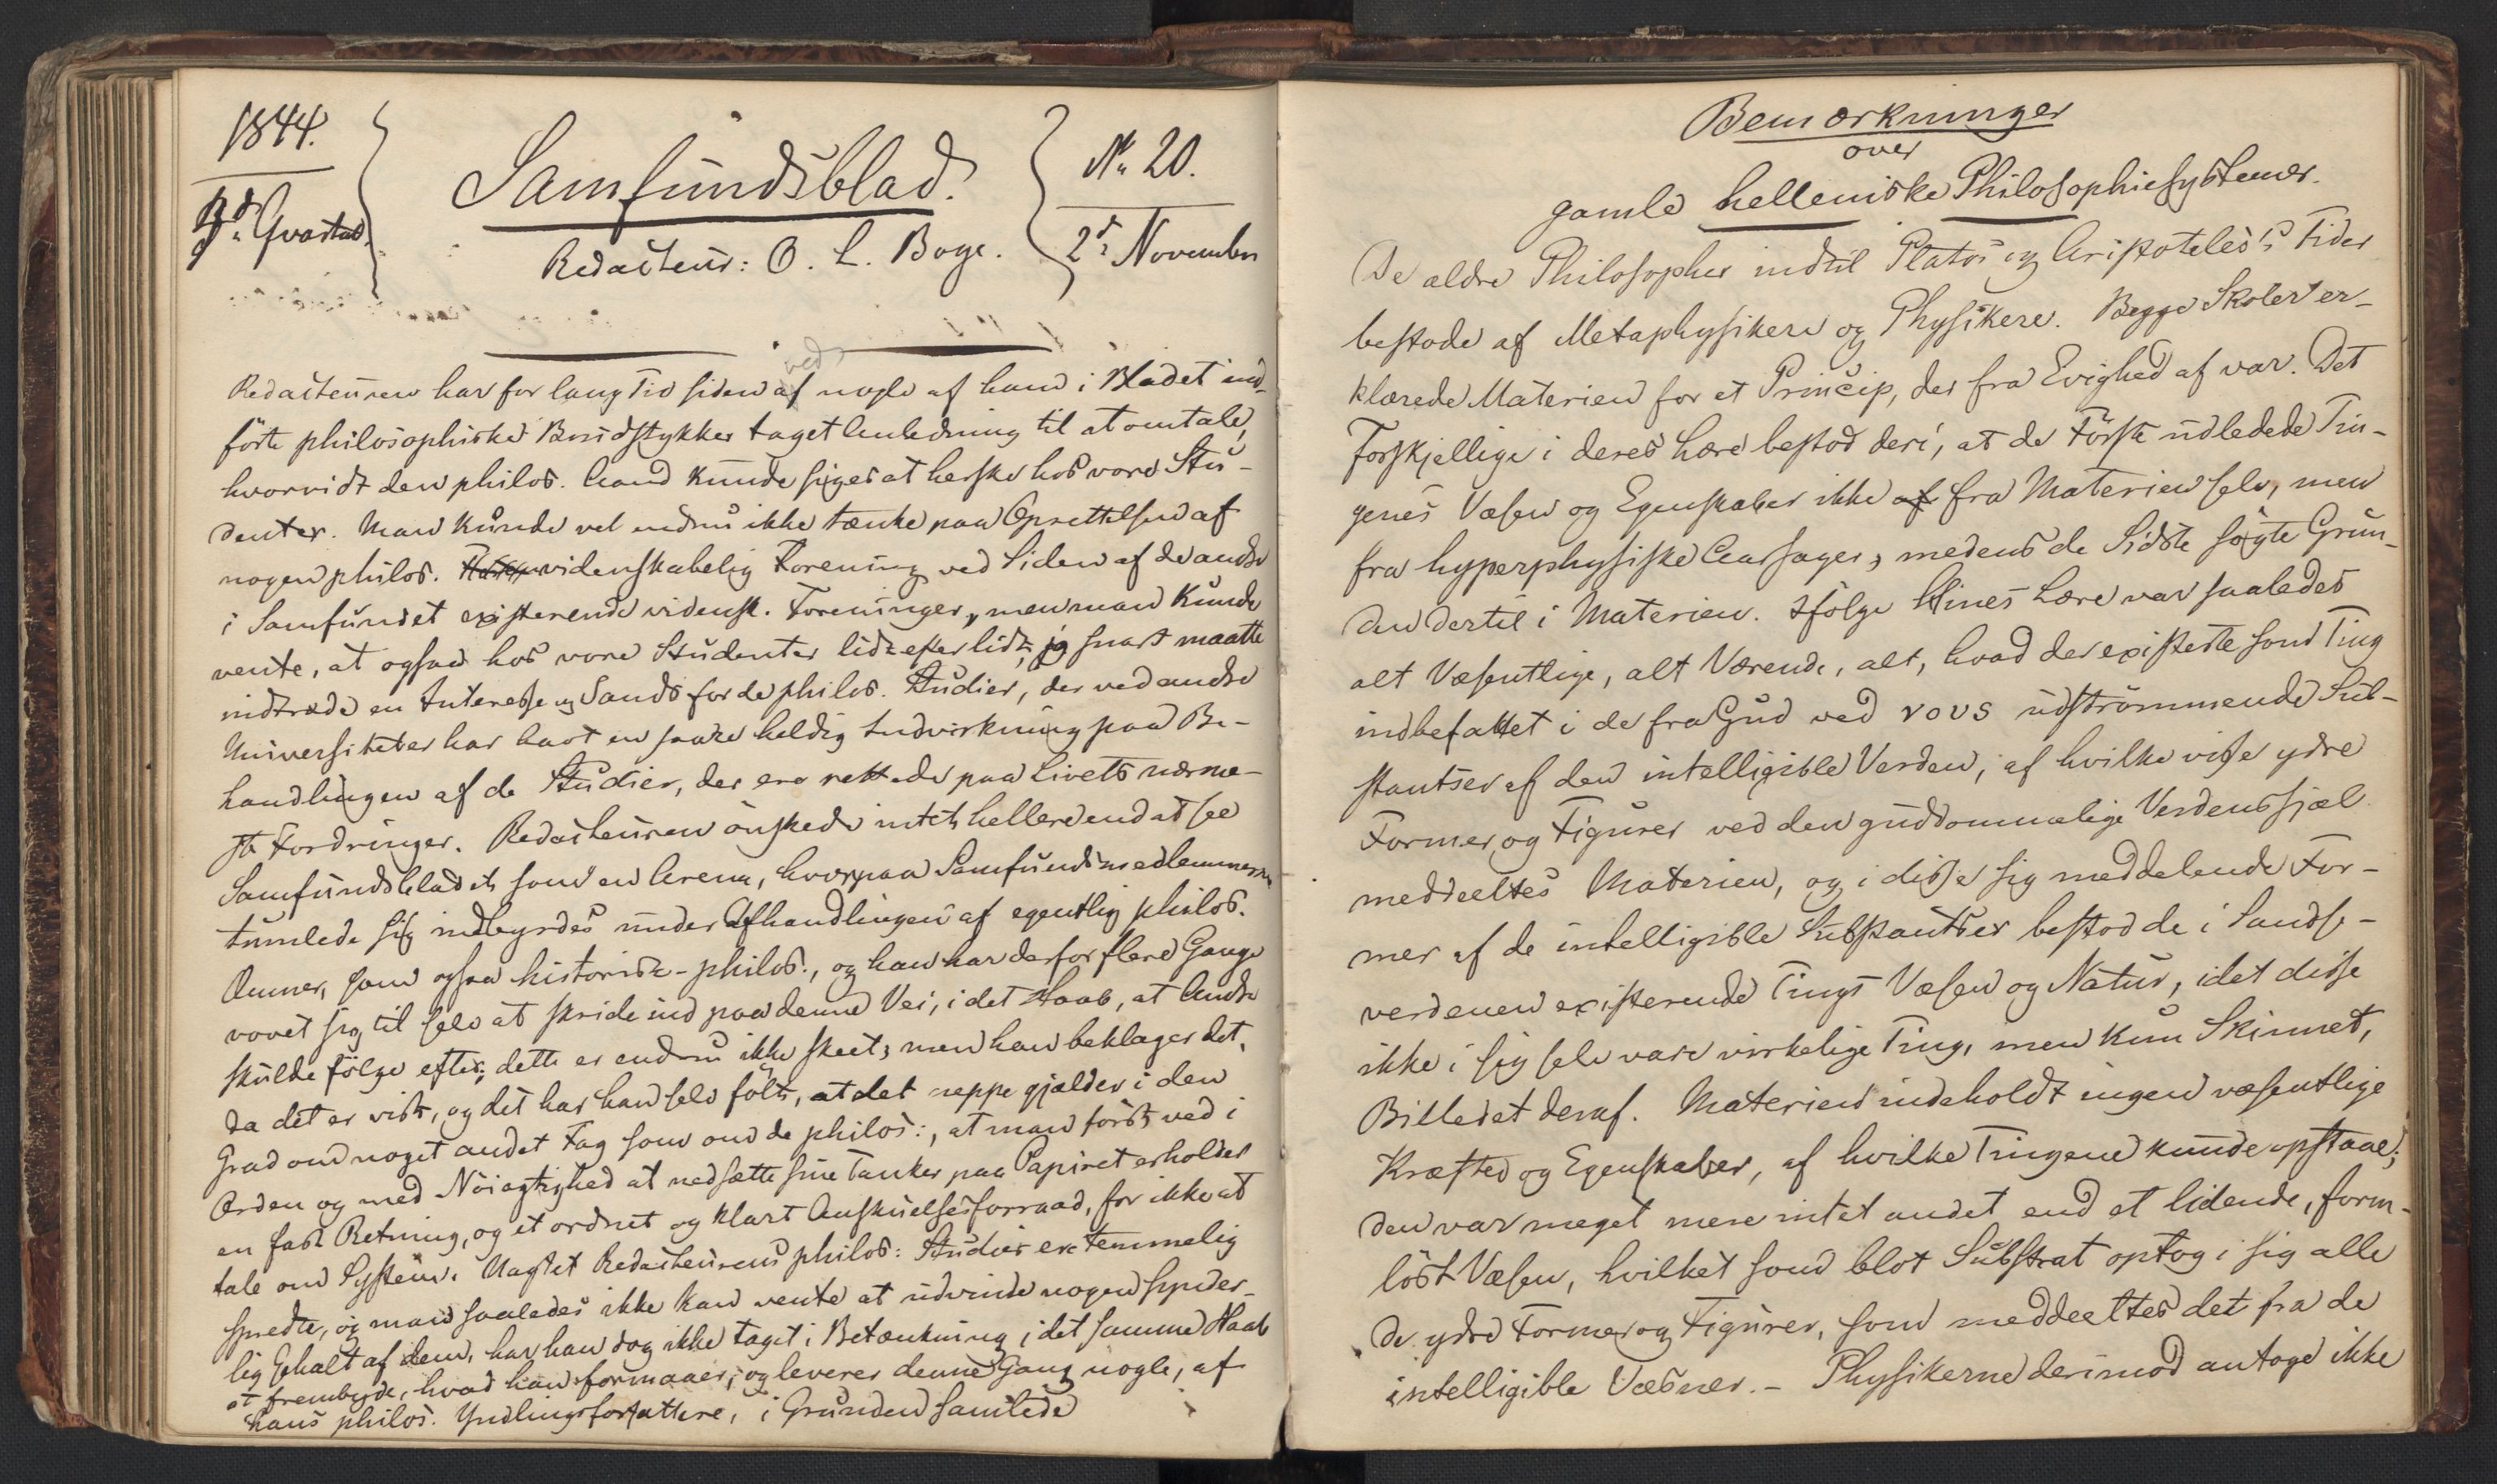 1844.
4de Qvartal.
Samfundsblad.
Redacteur: O. L. Boye.
No 20.
2den November
ved
Redacteuren har for lang Tid siden af nogle af ham i Bladet ind-
førte philosophiske Brudstykker taget Anledning til at omtale,
hvorvidt den philos. Aand kunde siges at herske hos vore Stu-
denter. Man kunde vel endnu ikke tænke paa Oprettelsen af
nogen philos. videnskabelig Forening ved Siden af de andre
i Samfundet existerende vidensk. Foreninger, men man kunde
vente, at ogsaa hos vore Studenter lidt efter lidt, jo snart maatte
indtræde en Interesse og Sands for de philos. Studier, der ved andre
Universiteter har havt en saare heldig Indvirkning paa Be-
handlingen af de Studier, der ere rettede paa Livets nærme-
ste Fordringer. Redacteuren ønskede intet hellere end at see
Samfundsbladet som en Arena, hvorpaa Samfundsmedlemmerne
tumlede sig indbyrdes under Afhandlingen af egentlig philos.
Emner, som ogsaa historisk-philos., og han har derfor flere Gange
vovet sig til selv at skride ind paa denne Vei, i det Haab, at Andre
skulde følge efter; dette er endnu ikke skeet; men han beklager det,
da det er vist, og det har han selv følt, at det neppe gjælder i den
Grad om noget andet Fag som om de philos:, at man først ved i
Orden og med Nöiagtighed at nedsætte sine Tanker paa Papiret erholder
en fast Retning, og et ordnet og klart Anskuelsesforraad, for ikke at
tale om System. Uagtet Redacteurens philos: Studier ere temmelig
spredte, og man saaledes ikke kan vente at udvinde nogen synder-
lig Gehalt af dem, har han dog ikke taget i Betænkning i det samme Haab
at frembyde, hvad han formaaer, og leverer denne Gang nogle, af
hans philos. Yndlingsforfattere, i Grunden samlede
Bemærkninger
over
gamle helleniske Philosophiesystemer.
De ældre Philosopher indtil Platos og Aristoteles's Tider
bestode af Metaphysikere og Physikere. Begge Skoler er-
klærede Materien for et Princip, der fra Evighed af var. Det
Forskjellige i deres Lære bestod deri, at de Første udledede Tin-
genes Væsen og Egenskaber ikke af fra Materien selv, men
fra hyperphysiske Aarsager, medens de Sidste søgte Grun-
den dertil i Materien. Ifølge Hines Lære var saaledes
alt Væsentlige, alt Værende, alt, hvad der existerte som Ting
indbefattet i de fra Gud ved νους udstrømmende Sub-
stantser af den intelligible Verden, af hvilke visse ydre
Former og Figurer ved den guddommelige Verdenssjæl
meddeeltes Materien, og i disse sig meddelende For-
mer af de intelligible Substantser bestod de i Sandse-
verdenen existerende Tings Væsen og Natur, idet disse
ikke i sig selv vare virkelige Ting, men kun Skinnet,
Billedet deraf. Materien indeholdt ingen væsentlige
Kræfter og Egenskaber, af hvilke Tingene kunde opstaae;
den var meget mere intet andet end et lidende, form-
løst Væsen, hvilket som blot Substrat optog i sig alle
de ydre Former og Figurer, som meddeeltes det fra de
intelligible Væsner. - Physikerne derimod antoge ikke